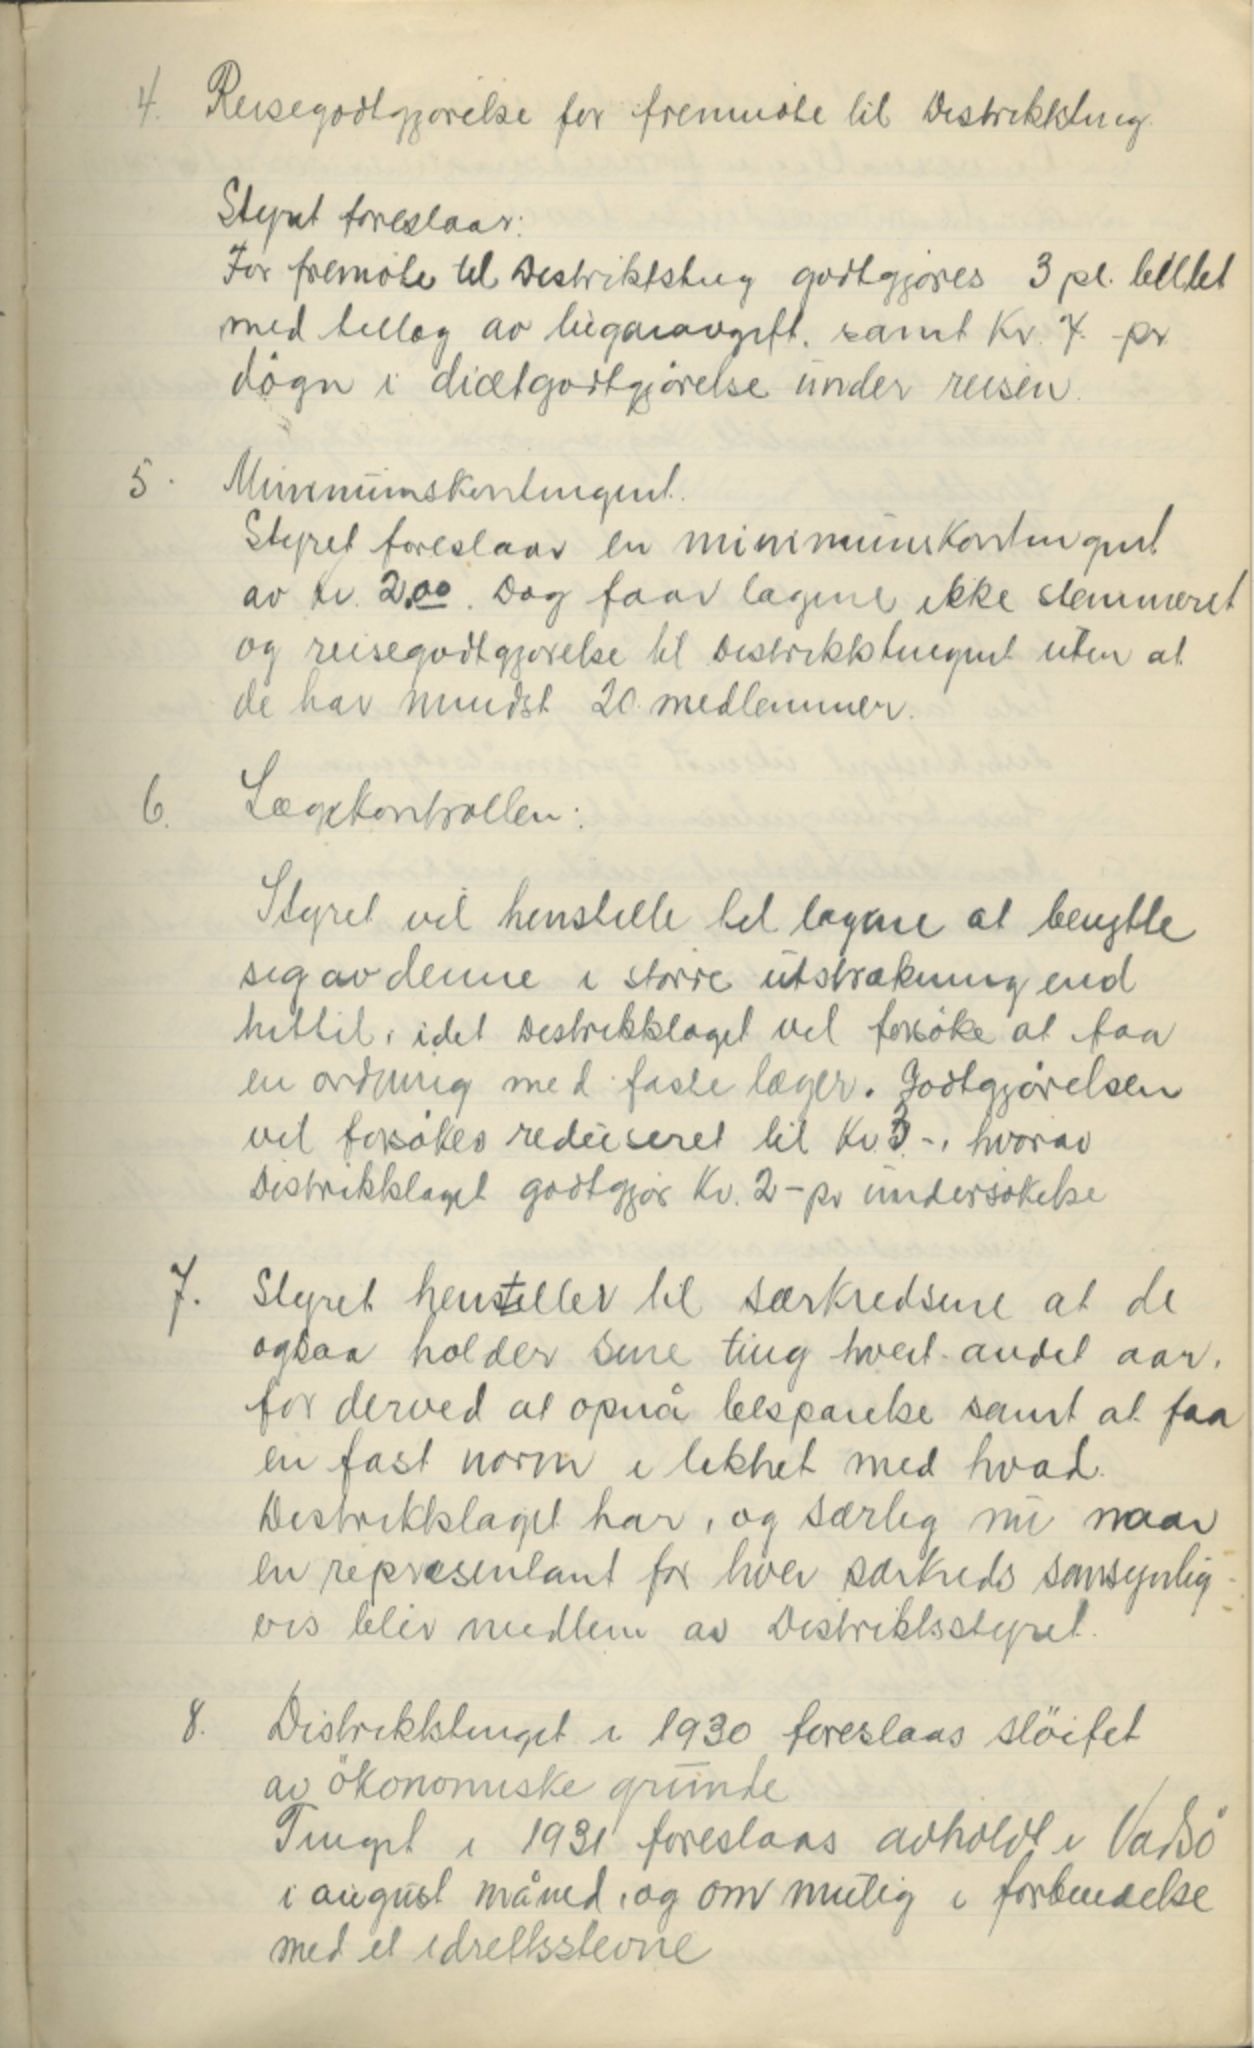 4. Reisegodtgjørelse for fremmöte til Distriktsting.
Styret foreslaar:
For fremöte til Distriktsting godtgjöres 3 pl. billet
med tillæg av lugaravgift. samt Kr. 7.- pr
dögn i diætgodtgjörelse under reisen.
5. Minimumskontingent.
Styret foreslaar en minimumskontingent
av kr. 2,00. Dog faar lagene ikke stemmeret
og reisegodtgjørelse til Distriktstinget uten at
de har mindst 20 medlemmer.
6. Lægekontrollen:
Styret vil henstille til lagene at benytte
seg av denne i större utstrækning end
hittil, idet Distriktslaget vil forsöke at faa
en ordning med faste læger. Godtgjörelsen
vil forsökes reduseret til Kr. 3.-, hvorav
Distriktslaget godtgjør Kr. 2- pr undersøkelse
7. Styret henstiller til særkredsene at de
ogsaa holder sine ting hvert andet aar,
for derved at opnå besparelse samt at faa
en fast norm i likhet med hvad
Distriktslaget har, og særlig nu naar
en repræsentant for hver særkreds sansynlig-
vis blir medlem av Distriktsstyret.
8. Distriktstinget i 1930 foreslaas slöifet
av ökonomiske grunde
Tinget i 1931 foreslaas avholdt i Vadsö
i august måned, og om mulig i forbindelse
med et idrettsstevne